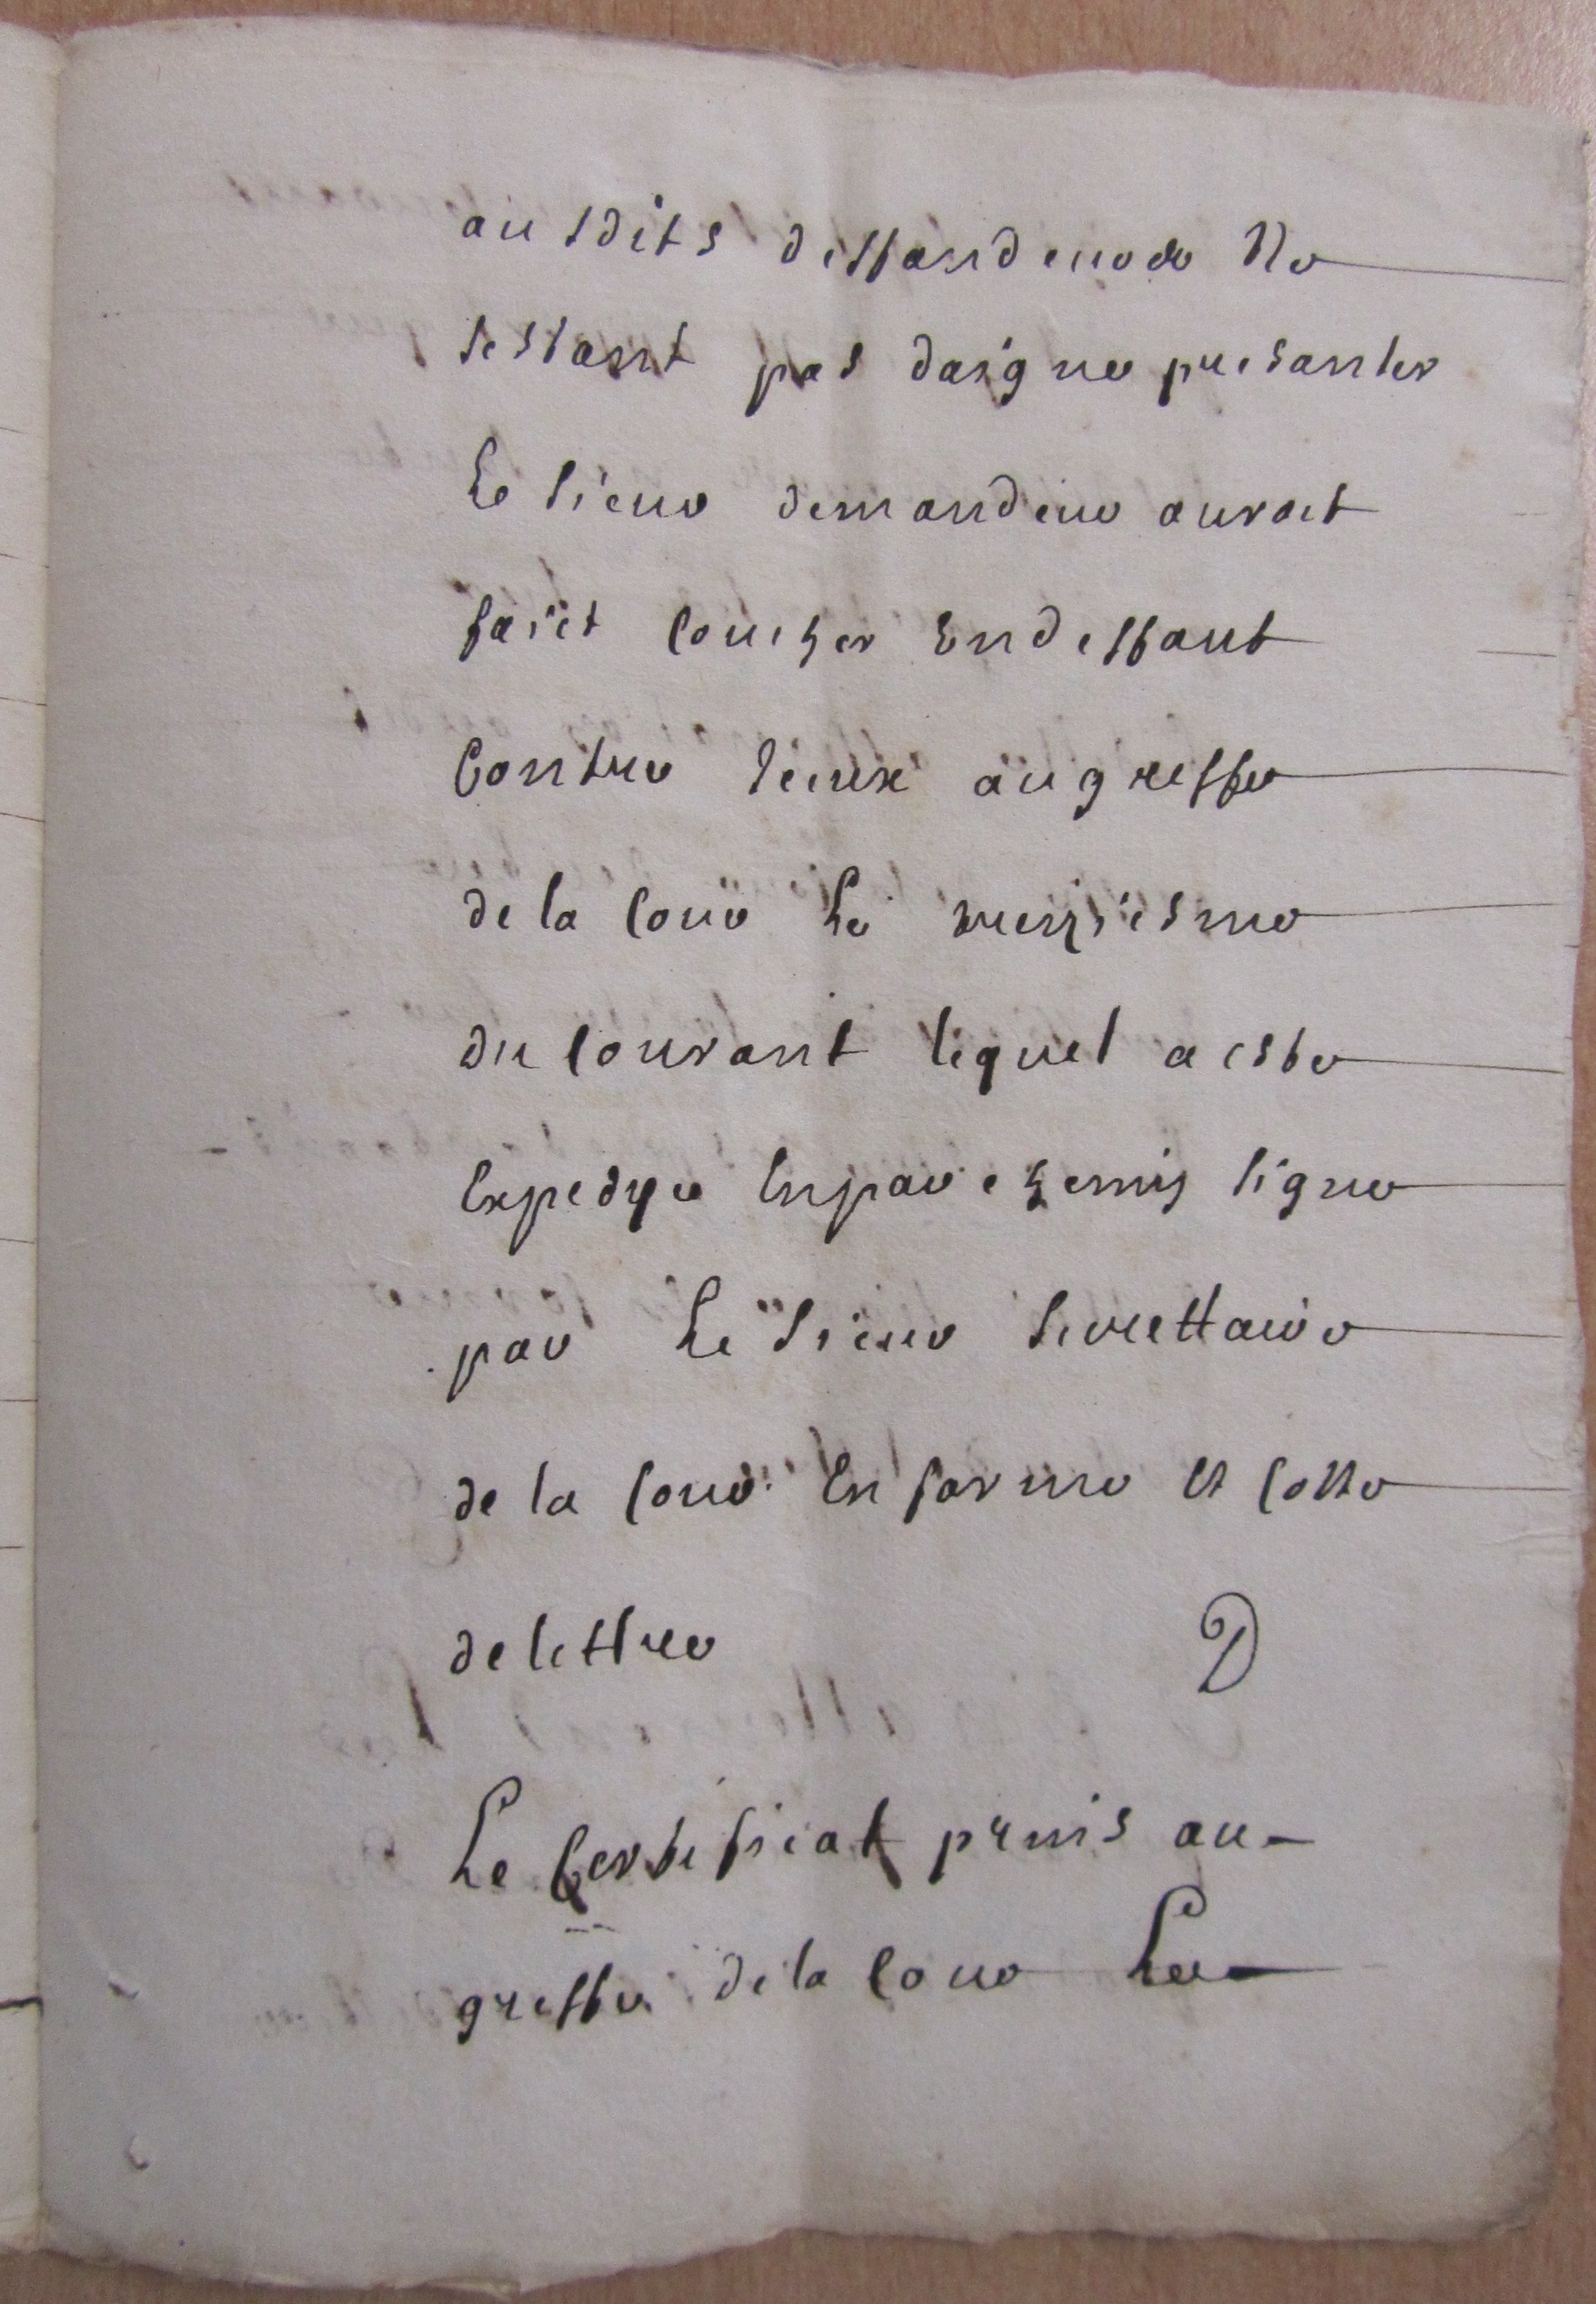 ausdits deffandeurs Ne
sestant pas daigne presanter
Le sieur demandeur auroit
faict coucher En deffaut
Contre Iceux au greffe
de la cour Le
du courant lequel a este
Expedye En parchemin signe
par Le sieur secrettaire
de la cour En forme et cotte
de lettre D
Le Certificat prins au-
greffe de la cour Le